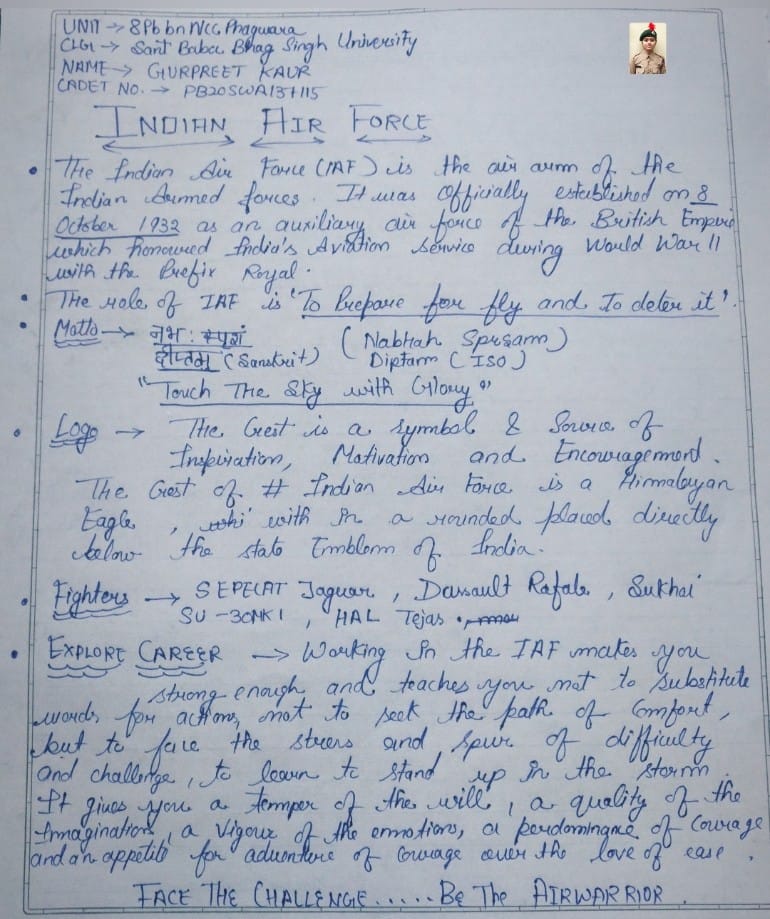 UNIT → 8Pb bn NCC Phagwara
CLG → Sant Baba Bhag Singh University
NAME → GURPREET KAUR
CADET NO. → PB20SWA137115
INDIAN AIR FORCE
The Indian Air Force (IAF) is the air arm of the
Indian Armed forces. It was Officially established on 8
October 1932 as an auxiliary air force of the British Empire
which honoured India's Aviation service during World War II
with the Prefix Royal.
The role of IAF is 'To Prepare for fly and To deter it'.
Motto → नभः स्पृशं (Nabhah Sprsam)
दीप्तम् (Sanskrit) Diptam (ISO)
"Touch The Sky with Glory"
Logo → The Crest is a symbol & Source of
Inspiration, Motivation and Encouragement.
The Crest of Indian Air Force is a Himmalayan
Eagle, with in a rounded placed directly
below the state Emblem of India.
Fighters → SEPECAT Jaguar, Dassault Rafale, Sukhoi
SU-30MKI, HAL Tejas.
EXPLORE CAREER → Working In the IAF makes you
strong enough and teaches you not to substitute
words for actions, not to seek the path of Comfort,
but to face the stress and spur of difficulty
and challenge, to learn to stand up in the storm.
It gives you a temper of the will, a quality of the
Immagination, a Vigour of the emotions, a perdominance of Courage
and an appetite for adventure of Courage over the love of ease.
FACE THE CHALLENGE..... BE THE AIRWARRIOR